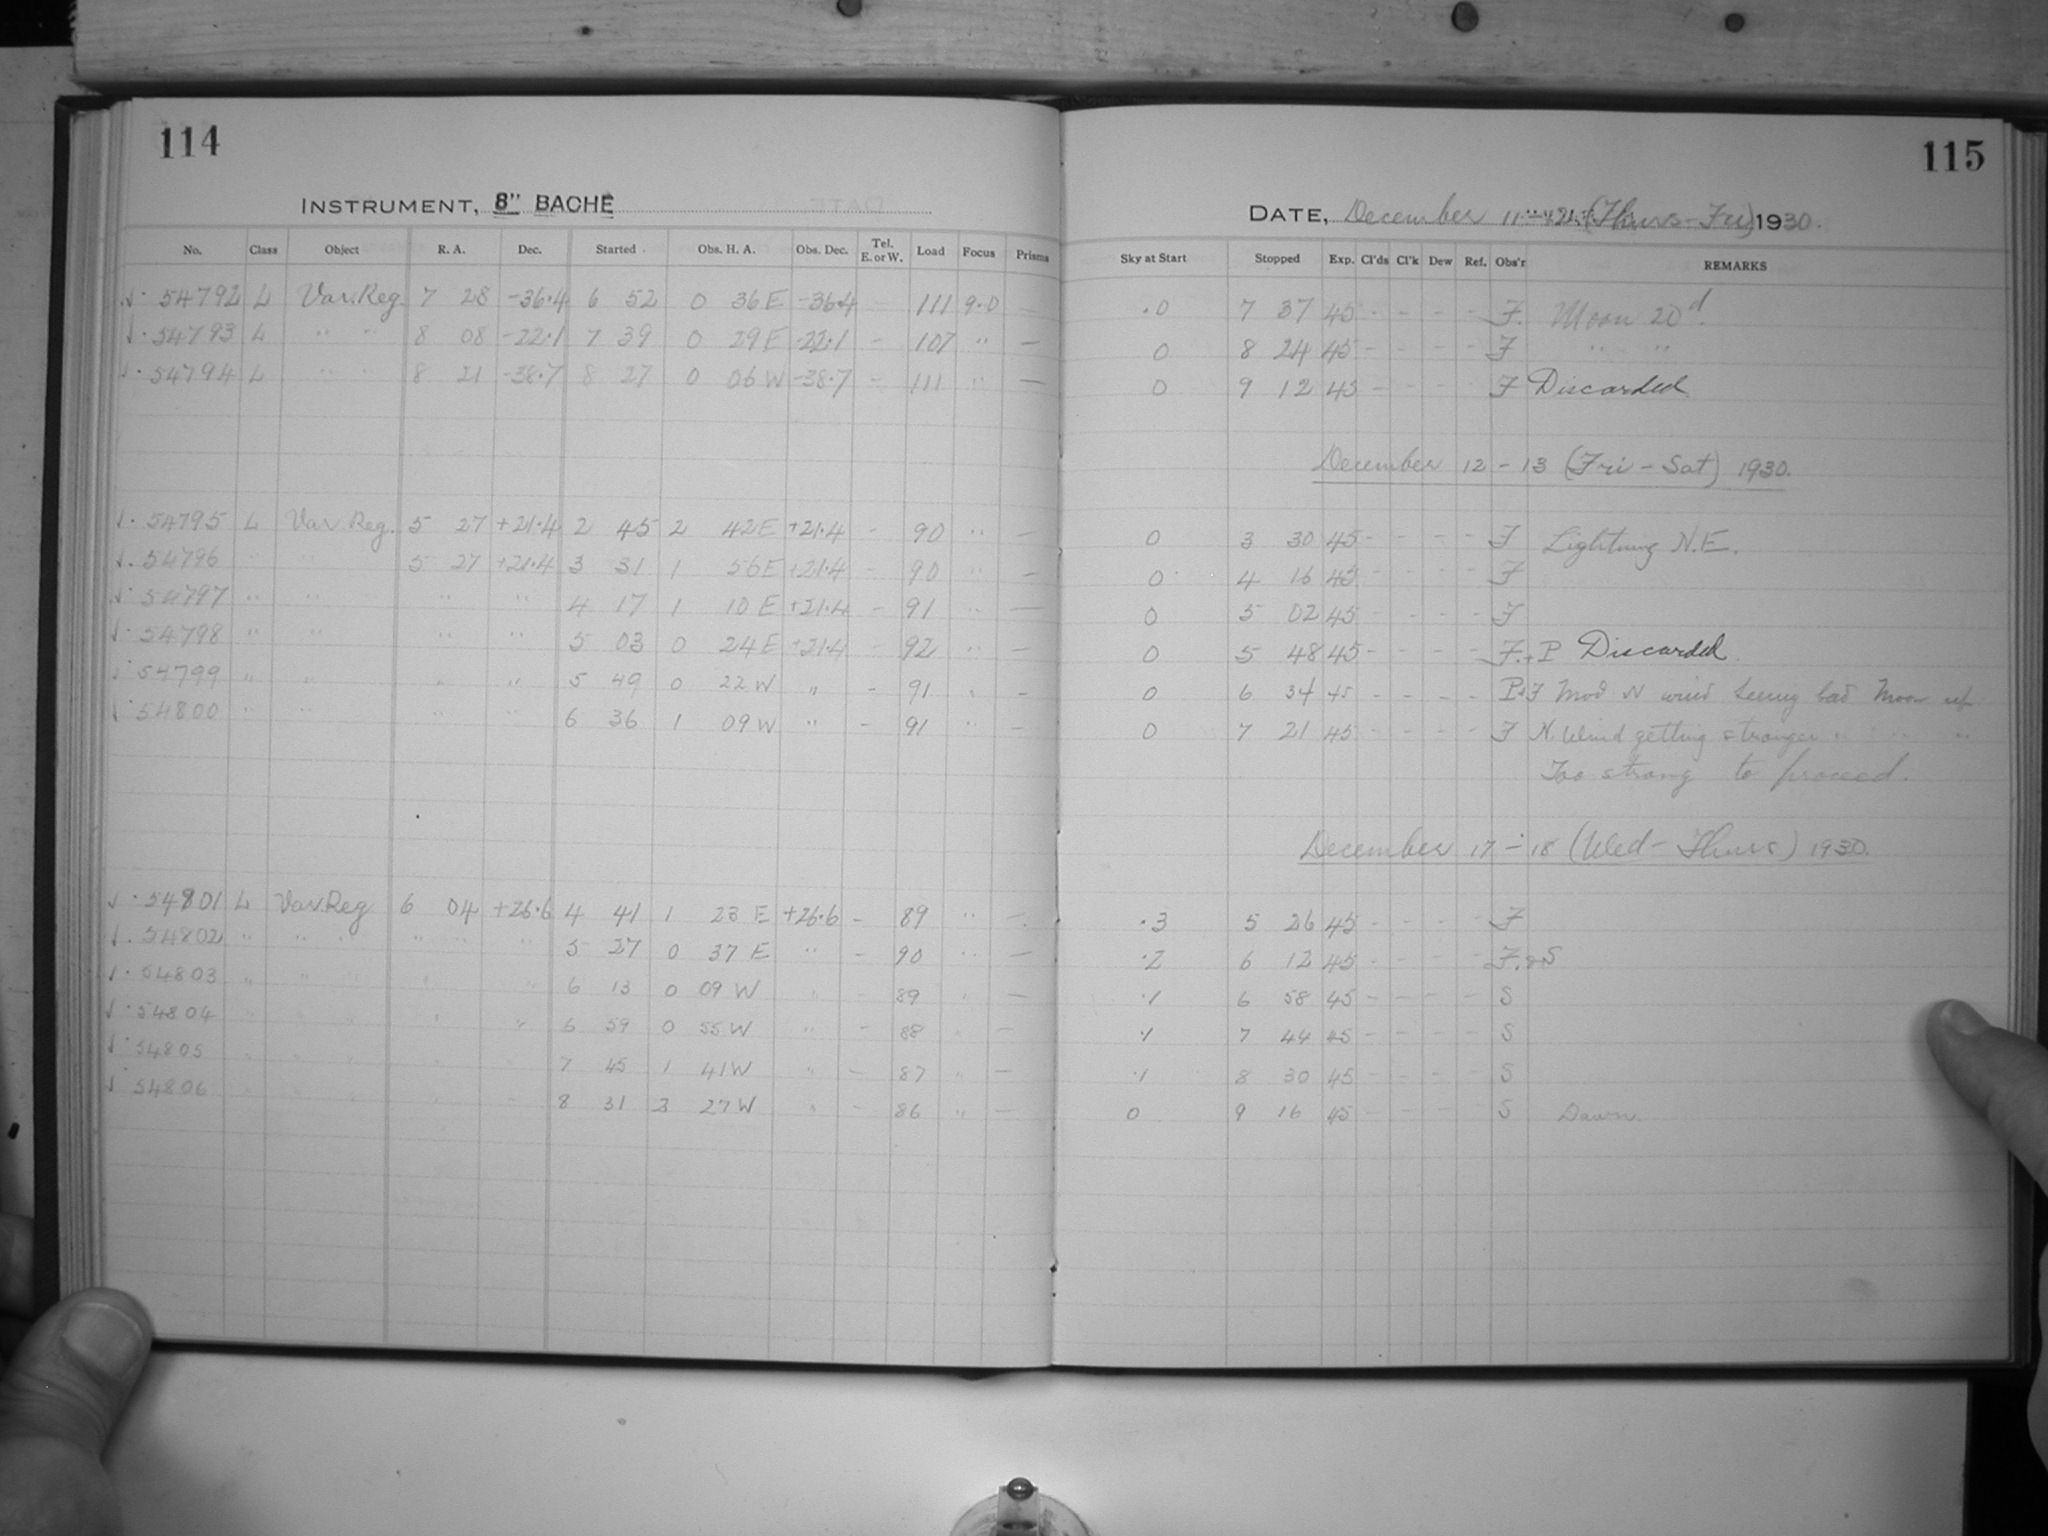 114
INSTRUMENT, 8" BACHE
No. Class Object R. A. Dec. Started Obs. H. A. Obs. Dec. Tel. E. or W. Load Focus Prisms
54792 L Var. Reg. 7 28 -36.4 6 52 0 36 E -36.4 - 111 9.0 —
54793 L " " 8 08 -22.1 7 39 0 29 E -22.1 - 107 " —
54794 L " " 8 21 -38.7 8 27 0 06 W -38.7 - 111 " —
54795 L Var. Reg. 5 27 +21.4 2 45 2 42 E +21.4 - 90 " —
54796 " " 5 27 +21.4 3 31 1 56 E +21.4 - 90 " —
54797 " " " " 4 17 1 10 E +21.4 - 91 " —
54798 " " " " 5 03 0 24 E +21.4 - 92 " —
54799 " " " " 5 49 0 22 W " - 91 " —
54800 " " " " 6 36 1 09 W " - 91 " —
54801 L Var. Reg 6 04 +26.6 4 41 1 23 E +26.6 - 89 " —
54802 " " " " " " 5 27 0 37 E " - 90 " —
54803 " " " " " 6 13 0 09 W " - 89 " —
54804 " " " " " 6 59 0 55 W " - 88 " —
54805 " " " " " 7 45 1 41 W " - 87 " —
54806 " " " " " 8 31 2 27 W " - 86 " —
115
DATE, December 11-12 (Thurs-Fri) 1930.
Sky at Start Stopped Exp. Cl'ds Cl'k Dew Ref. Obs'r REMARKS
.0 7 37 45 - - - - F. Moon 20d.
0 8 24 45 - - - - F " "
0 9 12 45 - - - F Discarded
December 12-13 (Fri-Sat) 1930.
0 3 30 45 - - - - F Lightning N.E.
0 4 16 45 - - - - F
0 5 02 45 - - - - F
0 5 48 45 - - - - F.+P Discarded.
0 6 34 45 - - - - P+F Mod N wind Seeing bad Moon up
0 7 21 45 - - - - F N. Wind getting stronger " " "
Too strong to proceed.
December 17-18 (Wed-Thurs) 1930.
.3 5 26 45 - - - - F
.2 6 12 45 - - - - F. & S
.1 6 58 45 - - - - S
.1 7 44 45 - - - - S
.1 8 30 45 - - - - S
0 9 16 45 - - - - S Dawn.